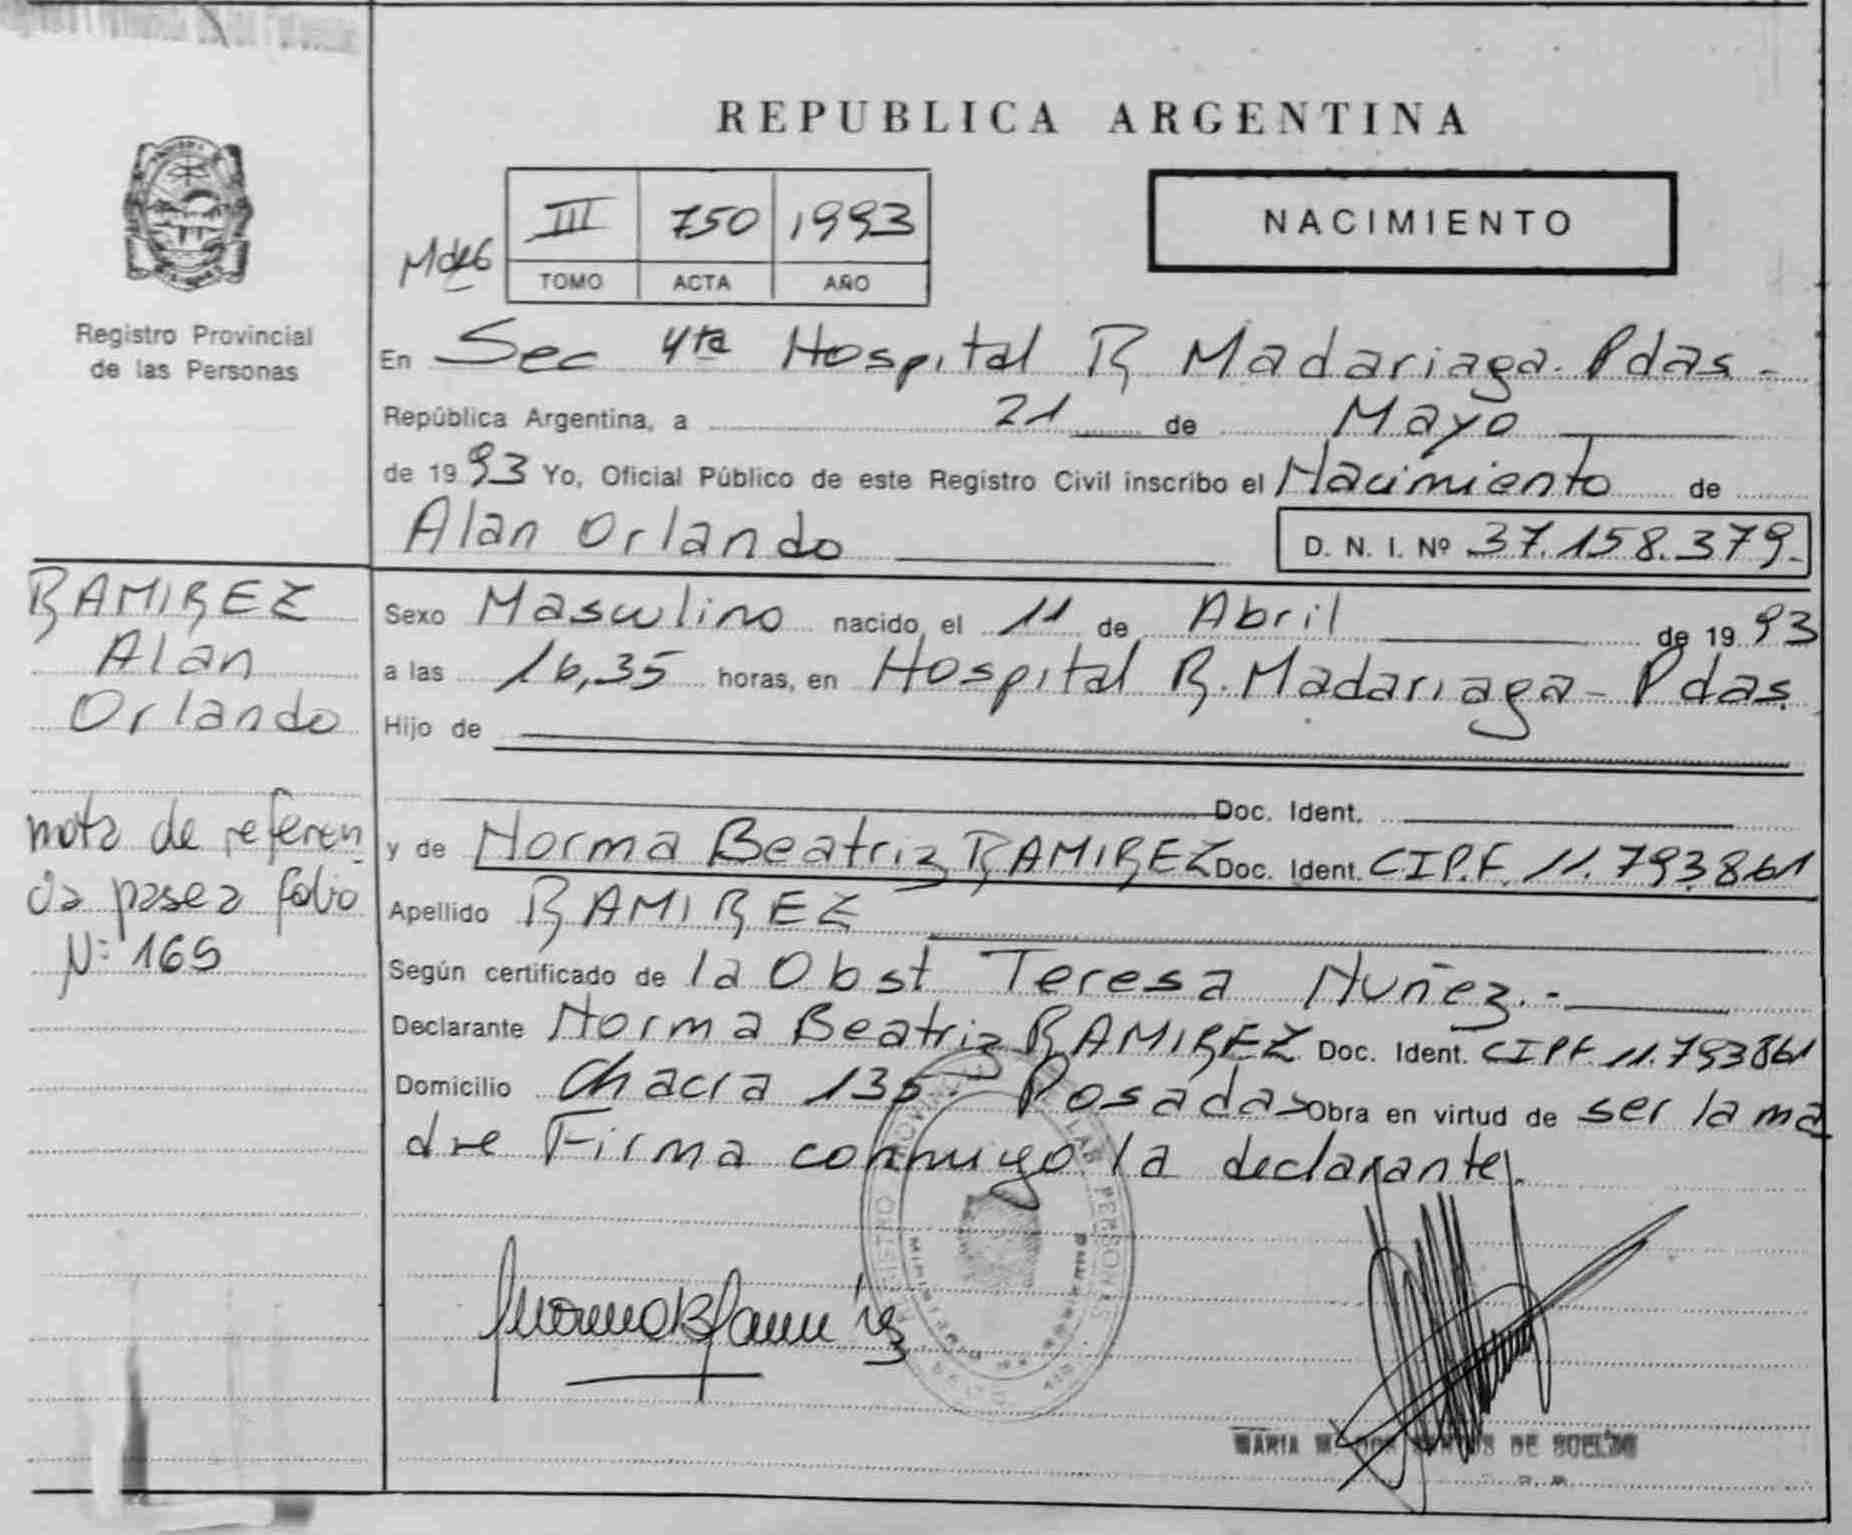 REPUBLICA ARGENTINA
NACIMIENTO
III 750 1993
TOMO ACTA AÑO
Registro Provincial
de las Personas
En Sec 4ta Hospital R Madariaga. Pdas -
República Argentina, a 21 de Mayo
de 1993 Yo, Oficial Público de este Registro Civil inscribo el Nacimiento de
Alan Orlando D. N. I. Nº 37.158.379.
RAMIREZ
Alan
Orlando
Sexo Masculino nacido el 11 de Abril de 1993
a las 16,35 horas, en Hospital R. Madariaga - Pdas.
Hijo de
Doc. Ident.
y de Norma Beatriz RAMIREZ Doc. Ident. C.I.P.F. 11.793.861
nota de referen
cia pase a folio
Nº 165
Apellido RAMIREZ
Según certificado de la Obst Teresa Nuñez.-
Declarante Norma Beatriz RAMIREZ Doc. Ident. CIPF. 11.793861
Domicilio Chacra 135. Posadas Obra en virtud de ser la ma
dre Firma conmigo la declarante.
REGISTRO PROVINCIAL DE LAS PERSONAS
MARIA DE